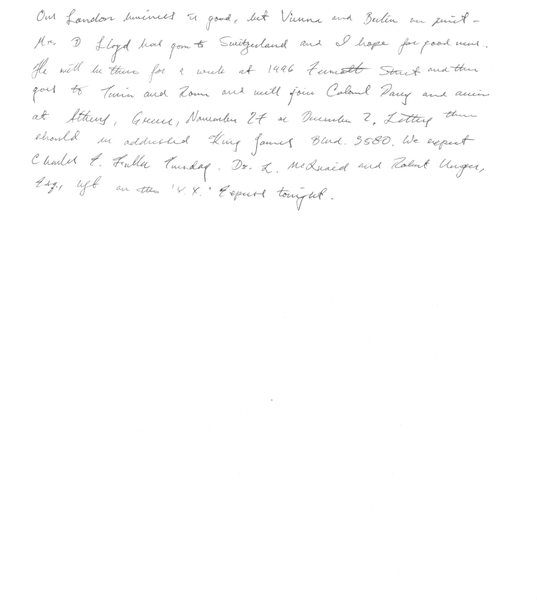 Our London business is good, but Vienna and Berlin are quiet -
Mr. D Lloyd has gone to Switzerland and I hope for good news.
He will be there for a week at 1496 Street and then
goes to Turin and Rome and will join Colonel Parry and arrive
at Athens, Greece, November 27 or December 2. Letters there
should be addressed King James Blvd. 3580. We expect
Charles F. Fuller Tuesday. Dr. L. McQuaid and Robert Unger,
Esq., left on the 'Y.X.' Express tonight.